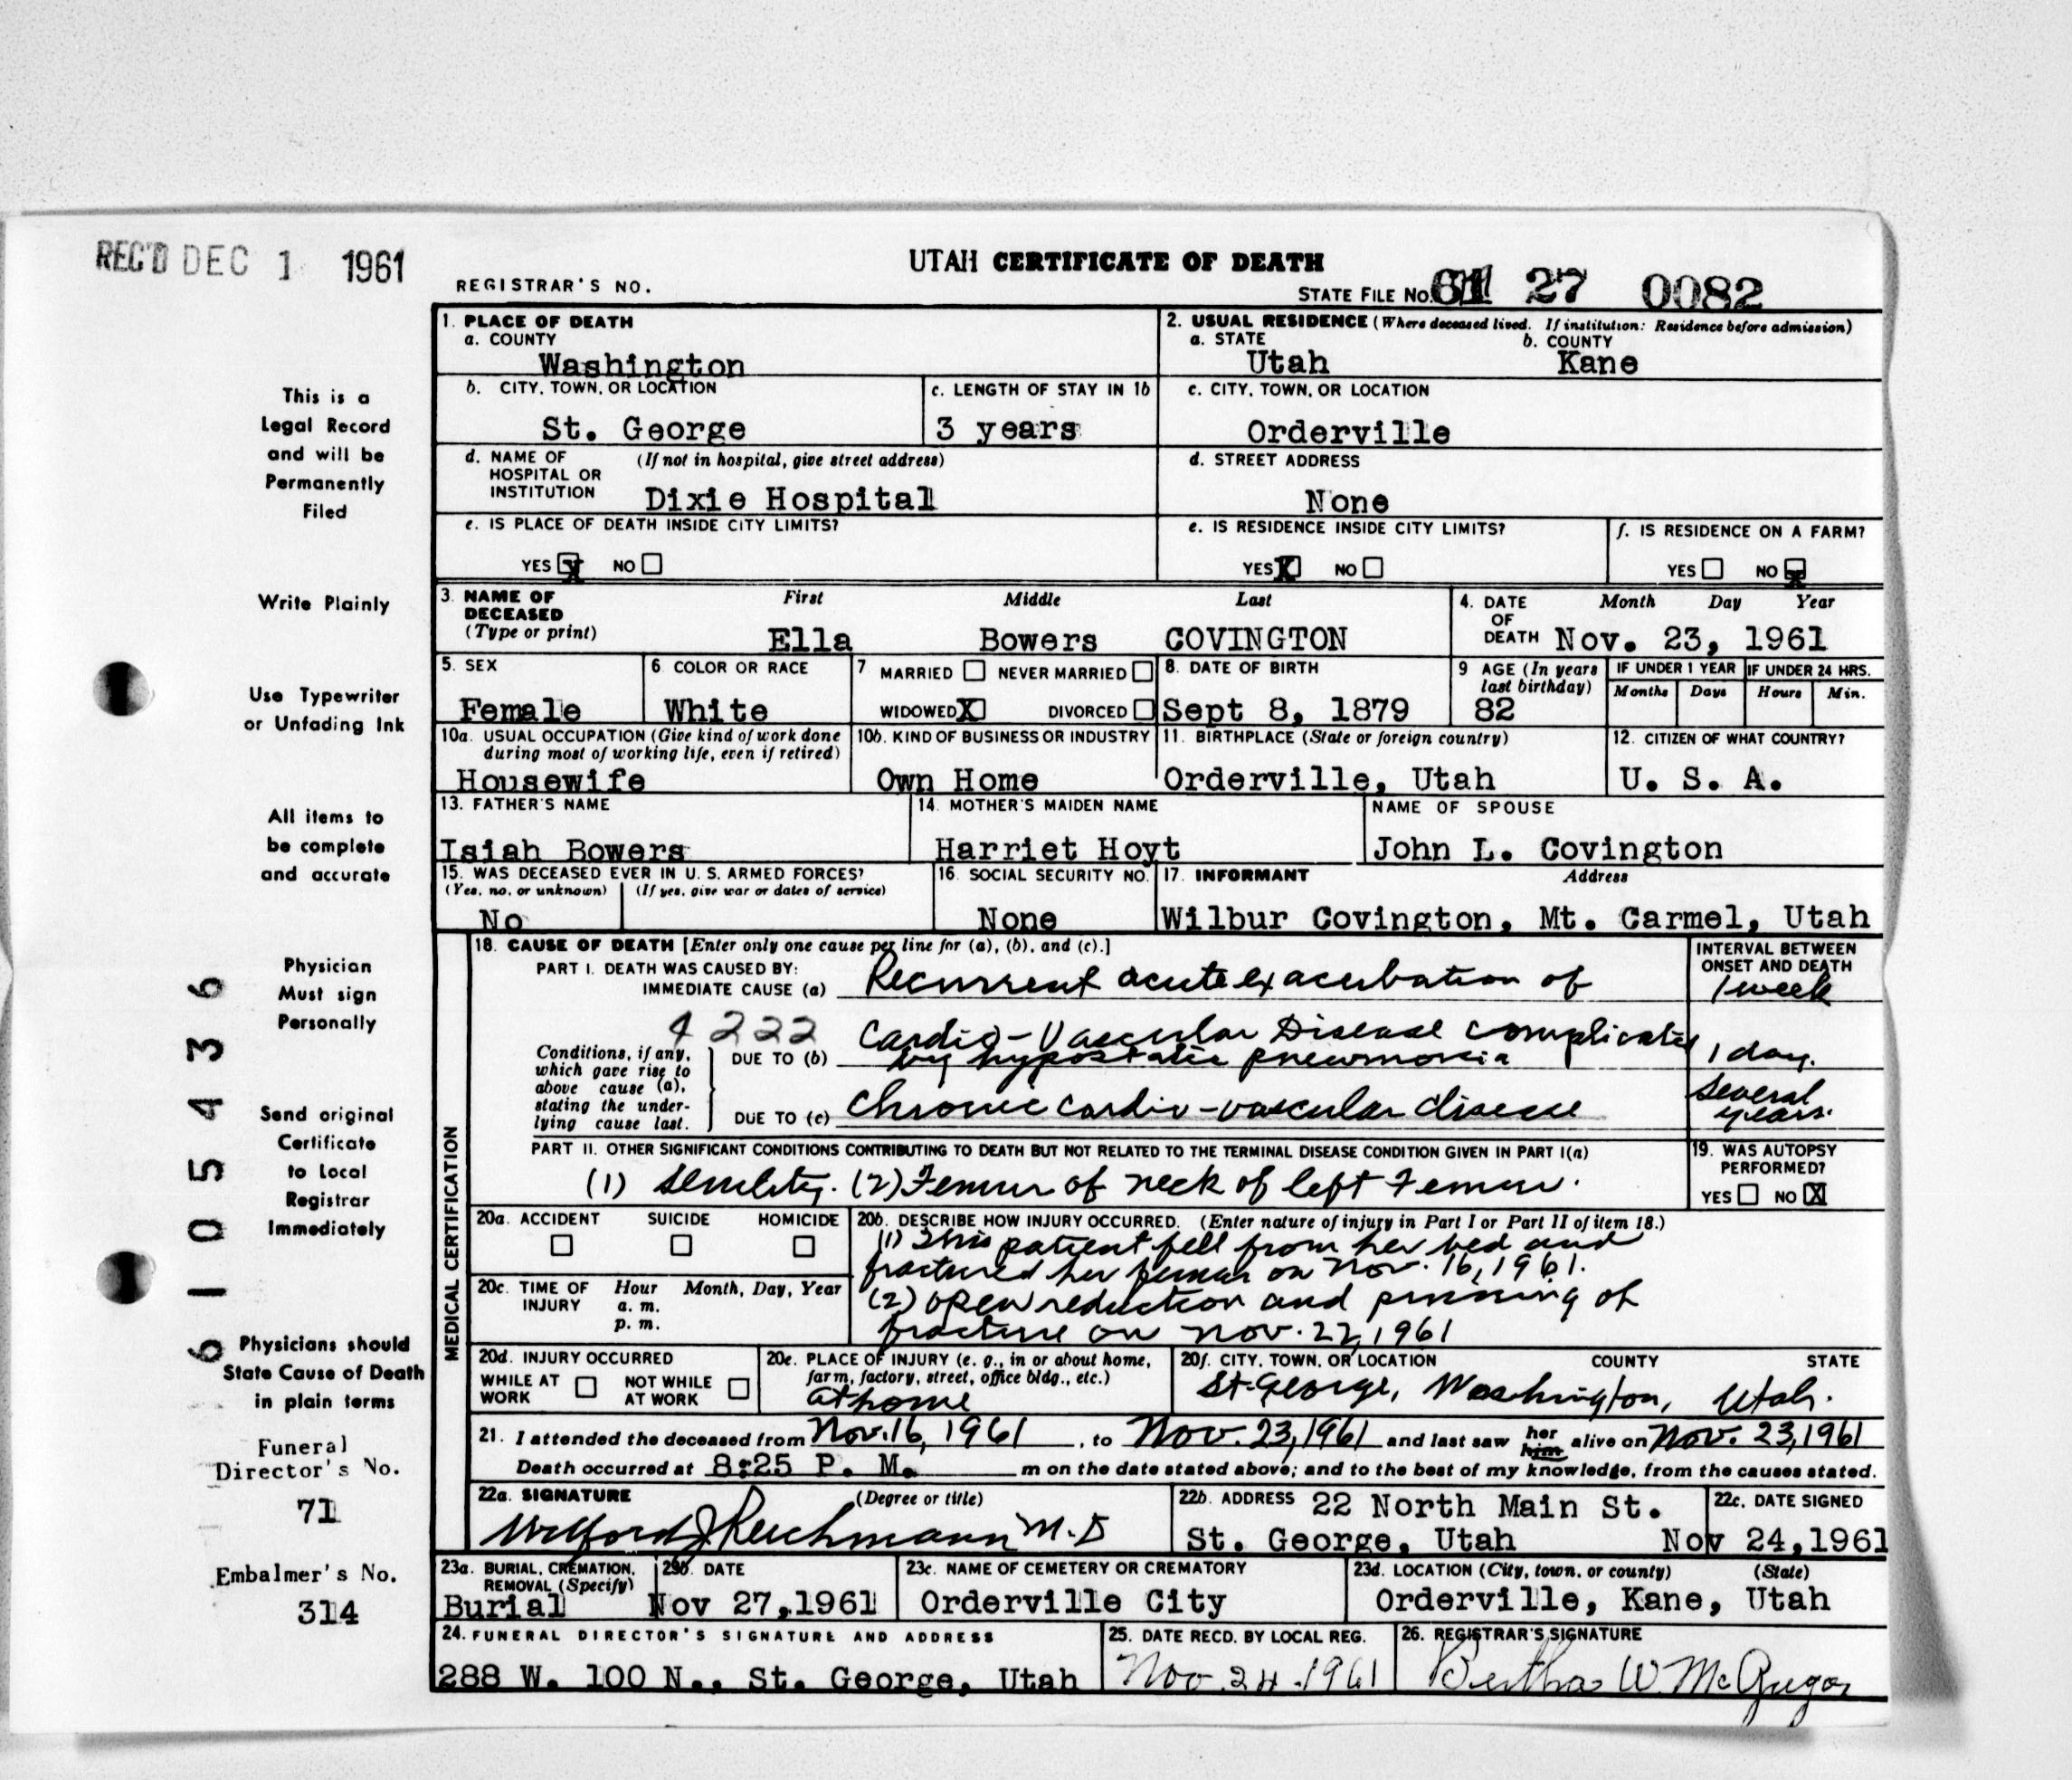 REC'D DEC 1 1961
UTAH CERTIFICATE OF DEATH
REGISTRAR'S NO.
STATE FILE NO. 61 27 0082
This is a
Legal Record
and will be
Permanently
Filed
Write Plainly
Use Typewriter
or Unfading Ink
All items to
be complete
and accurate
Physician
Must sign
Personally
Send original
Certificate
to Local
Registrar
Immediately
Physicians should
State Cause of Death
in plain terms
Funeral
Director's No.
71
Embalmer's No.
314
6105436
1. PLACE OF DEATH
a. COUNTY
Washington
2. USUAL RESIDENCE (Where deceased lived. If institution: Residence before admission)
a. STATE b. COUNTY
Utah Kane
b. CITY, TOWN, OR LOCATION
St. George
c. LENGTH OF STAY IN 1b
3 years
c. CITY, TOWN, OR LOCATION
Orderville
d. NAME OF (If not in hospital, give street address)
HOSPITAL OR
INSTITUTION Dixie Hospital
d. STREET ADDRESS
None
e. IS PLACE OF DEATH INSIDE CITY LIMITS?
YES X NO
e. IS RESIDENCE INSIDE CITY LIMITS?
YES X NO
f. IS RESIDENCE ON A FARM?
YES NO X
3. NAME OF First Middle Last
DECEASED
(Type or print) Ella Bowers COVINGTON
4. DATE Month Day Year
OF
DEATH Nov. 23, 1961
5. SEX
Female
6. COLOR OR RACE
White
7 MARRIED NEVER MARRIED
WIDOWED X DIVORCED
8. DATE OF BIRTH
Sept 8, 1879
9 AGE (In years
last birthday)
82
IF UNDER 1 YEAR IF UNDER 24 HRS.
Months Days Hours Min.
10a. USUAL OCCUPATION (Give kind of work done
during most of working life, even if retired)
Housewife
10b. KIND OF BUSINESS OR INDUSTRY
Own Home
11. BIRTHPLACE (State or foreign country)
Orderville, Utah
12. CITIZEN OF WHAT COUNTRY?
U. S. A.
13. FATHER'S NAME
Isiah Bowers
14. MOTHER'S MAIDEN NAME
Harriet Hoyt
NAME OF SPOUSE
John L. Covington
15. WAS DECEASED EVER IN U. S. ARMED FORCES?
(Yes, no, or unknown) (If yes, give war or dates of service)
No
16. SOCIAL SECURITY NO.
None
17. INFORMANT Address
Wilbur Covington, Mt. Carmel, Utah
MEDICAL CERTIFICATION
18. CAUSE OF DEATH [Enter only one cause per line for (a), (b), and (c).]
INTERVAL BETWEEN
ONSET AND DEATH
PART I. DEATH WAS CAUSED BY:
IMMEDIATE CAUSE (a) Recurrent acute exacerbation of 1 week
4222 Cardio-Vascular Disease complicated
Conditions, if any,
which gave rise to
above cause (a),
stating the under-
lying cause last.
DUE TO (b) by hypostatic pneumonia 1 day.
DUE TO (c) Chronic cardio-vascular disease several
years.
PART II. OTHER SIGNIFICANT CONDITIONS CONTRIBUTING TO DEATH BUT NOT RELATED TO THE TERMINAL DISEASE CONDITION GIVEN IN PART I(a)
(1) Senility. (2) Femur of neck of left Femur.
19. WAS AUTOPSY
PERFORMED?
YES NO X
20a. ACCIDENT SUICIDE HOMICIDE
20b. DESCRIBE HOW INJURY OCCURRED. (Enter nature of injury in Part I or Part II of item 18.)
(1) This patient fell from her bed and
fractured her femur on Nov. 16, 1961.
(2) open reduction and pinning of
fracture on Nov. 22, 1961
20c. TIME OF Hour Month, Day, Year
INJURY a. m.
p. m.
20d. INJURY OCCURRED
WHILE AT NOT WHILE
WORK AT WORK
20e. PLACE OF INJURY (e. g., in or about home,
farm, factory, street, office bldg., etc.)
at home
20f. CITY, TOWN, OR LOCATION COUNTY STATE
St. George, Washington, Utah.
21. I attended the deceased from Nov. 16, 1961, to Nov. 23, 1961 and last saw her him alive on Nov. 23, 1961
Death occurred at 8:25 P. M. m on the date stated above; and to the best of my knowledge, from the causes stated.
22a. SIGNATURE (Degree or title)
Wilford J Reichmann M.D
22b. ADDRESS 22 North Main St.
St. George, Utah
22c. DATE SIGNED
Nov 24,1961
23a. BURIAL, CREMATION,
REMOVAL (Specify)
Burial
23b. DATE
Nov 27,1961
23c. NAME OF CEMETERY OR CREMATORY
Orderville City
23d. LOCATION (City, town, or county) (State)
Orderville, Kane, Utah
24. FUNERAL DIRECTOR'S SIGNATURE AND ADDRESS
288 W. 100 N., St. George, Utah
25. DATE RECD. BY LOCAL REG.
Nov. 24. 1961
26. REGISTRAR'S SIGNATURE
Bertha W. McGregor